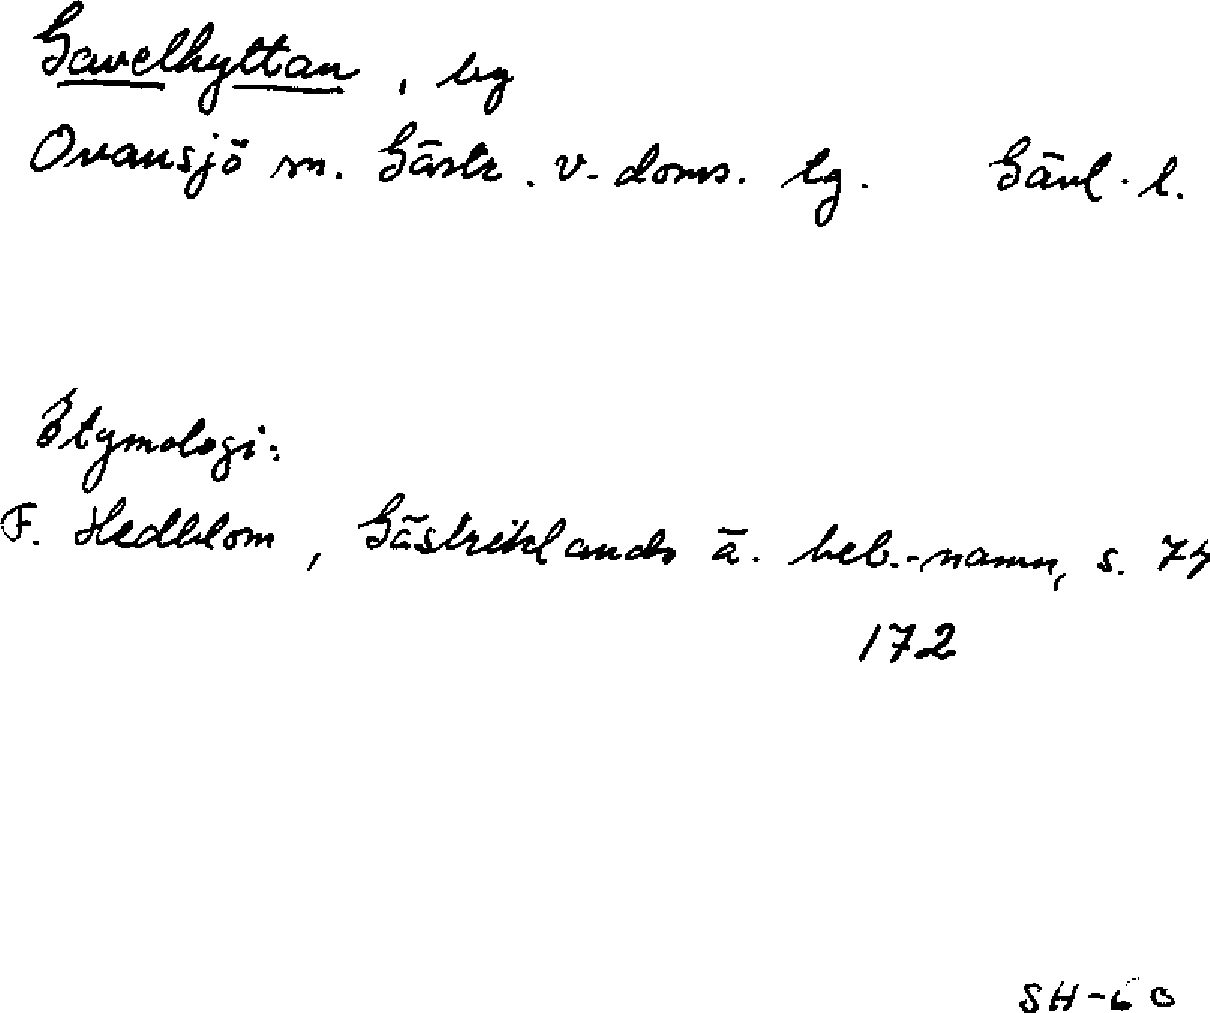 Gavelhyttan, by
Ovansjö sn. Gästr. v. doms. tg. Gävl. l.
Etymologi:
F. Hedblom, Gästriklands ä. beb.-namn, s. 74
172
SH-60